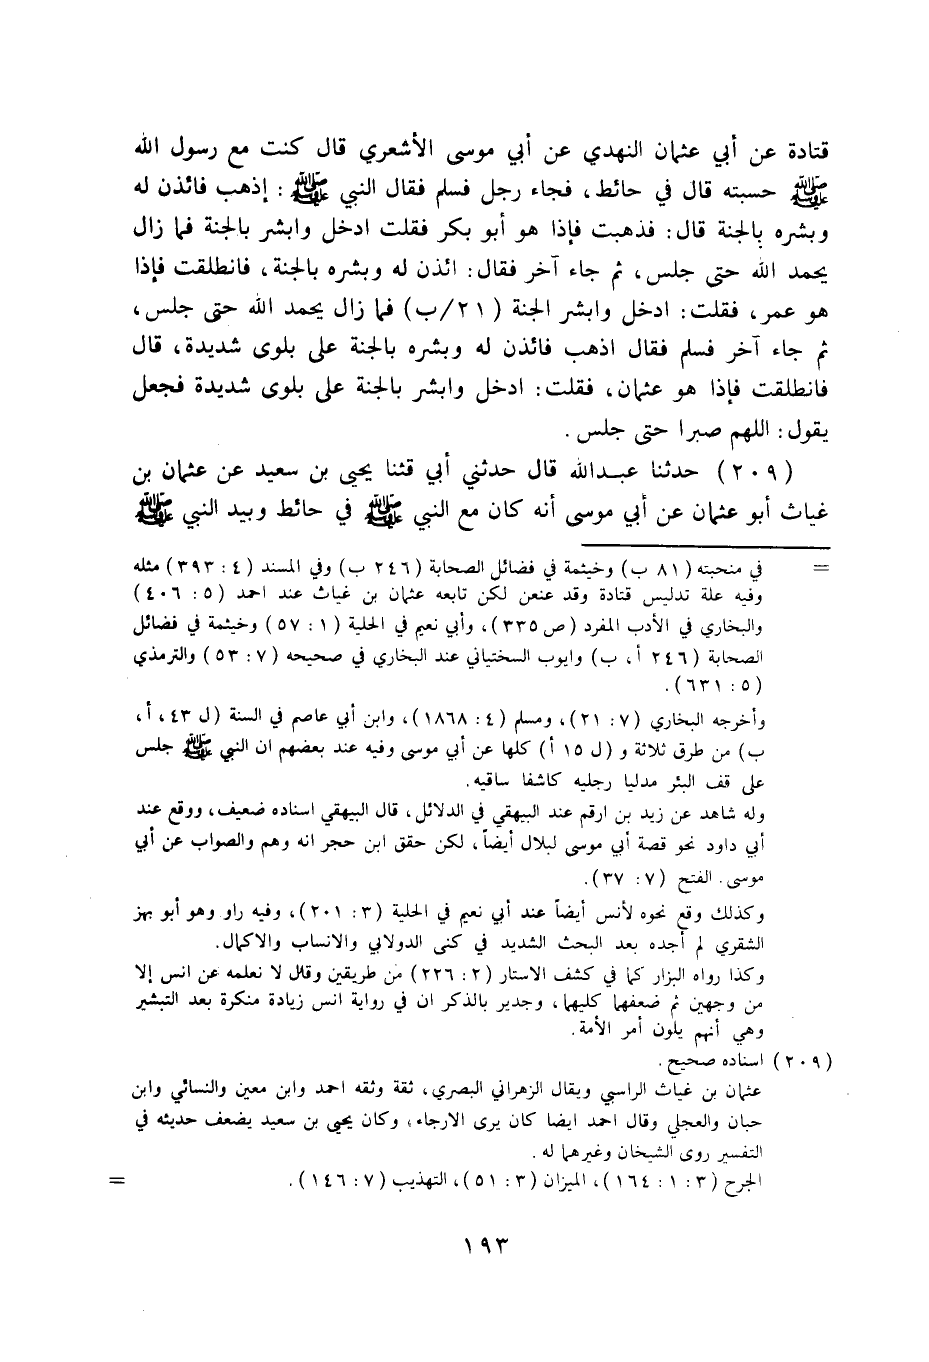 قتادة عن أبي عثمان النهدي عن أبي موسى الأشعري قال كنت مع رسول الله
ﷺ حسبته قال في حائط، فجاء رجل فسلم فقال النبي ﷺ : إذهب فائذن له
وبشره بالجنة قال: فذهبت فإذا هو أبو بكر فقلت ادخل وابشر بالجنة فما زال
يحمد الله حتى جلس، ثم جاء آخر فقال: ائذن له وبشره بالجنة، فانطلقت فإذا
هو عمر، فقلت: ادخل وابشر الجنة (٢١/ب) فما زال يحمد الله حتى جلس،
ثم جاء آخر فسلم فقال اذهب فائذن له وبشره بالجنة على بلوى شديدة، قال
فانطلقت فإذا هو عثمان، فقلت: ادخل وابشر بالجنة على بلوى شديدة فجعل
يقول: اللهم صبرا حتى جلس.
(٢٠٩) حدثنا عبدالله قال حدثني أبي قثنا يحيى بن سعيد عن عثمان بن
غياث أبو عثمان عن أبي موسى أنه كان مع النبي ﷺ في حائط وبيد النبي ﷺ
= في منحبته (٨١ ب) وخيثمة في فضائل الصحابة (٢٤٦ ب) وفي المسند (٤: ٣٩٣) مثله
وفيه علة تدليس قتادة وقد عنعن لكن تابعه عثمان بن غياث عند احمد (٥: ٤٠٦)
والبخاري في الأدب المفرد (ص ٣٣٥)، وأبي نعيم في الحلية (١: ٥٧) وخيثمة في فضائل
الصحابة (٢٤٦ أ، ب) وايوب السختياني عند البخاري في صحيحه (٧: ٥٣) والترمذي
(٥: ٦٣١).
وأخرجه البخاري (٧: ٢١)، ومسلم (٤: ١٨٦٨)، وابن أبي عاصم في السنة (ل ٤٣، أ،
ب) من طرق ثلاثة و (ل ١٥ أ) كلها عن أبي موسى وفيه عند بعضهم ان النبي ﷺ جلس
على قف البئر مدليا رجليه كاشفا ساقيه.
وله شاهد عن زيد بن ارقم عند البيهقي في الدلائل، قال البيهقي اسناده ضعيف، ووقع عند
أبي داود نحو قصة أبي موسى لبلال أيضاً، لكن حقق ابن حجر انه وهم والصواب عن أبي
موسى. الفتح (٧: ٣٧).
وكذلك وقع نحوه لأنس أيضاً عند أبي نعيم في الحلية (٣: ٢٠١)، وفيه راو وهو أبو بهز
الشقري لم أجده بعد البحث الشديد في كنى الدولابي والانساب والاكمال.
وكذا رواه البزار كما في كشف الاستار (٢: ٢٢٦) من طريقين وقال لا نعلمه عن انس إلا
من وجهين ثم ضعفها كليهما، وجدير بالذكر ان في رواية انس زيادة منكرة بعد التبشير
وهي أنهم يلون أمر الأمة.
(٢٠٩) اسناده صحيح.
عثمان بن غياث الراسبي ويقال الزهراني البصري، ثقة وثقه احمد وابن معين والنسائي وابن
حبان والعجلي وقال احمد ايضا كان يرى الارجاء، وكان يحيى بن سعيد يضعف حديثه في
التفسير روى الشيخان وغيرهما له.
الجرح (٣: ١: ١٦٤)، الميزان (٣: ٥١)، التهذيب (٧: ١٤٦). =
١٩٣